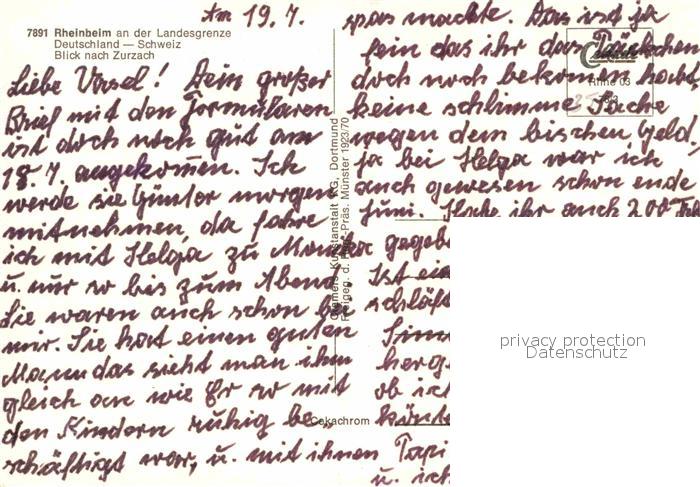 Am 19.7.
7891 Rheinbeim an der Landesgrenze
Deutschland — Schweiz
Blick nach Zurzach
Liebe Ursel! Dein großer
Brief mit den Formularen
ist doch noch gut am
18.7. angekommen. Ich
werde sie Günter morgen
mitnehmen, da fahre
ich mit Helga zu Monika
u. nur so bis zum Abend.
Sie waren auch schon bei
mir. Sie hat einen guten
Mann das sieht man ihm
gleich an wie Er so mit
den Kindern ruhig be
schäftigt war, u. mit ihnen
spas machte. Das ist ja
fein das ihr das
doch noch bekomen habt
keine schlimme Sache
wegen dem bischen Geld,
ja bei Helga war ich
auch gewesen schon ende
Juni. Habe ihr auch 200
gegebe
Ist ein
schläft
herge
ob ich
könte
Tapi
u. ich
Cramers Kunstanstalt KG, Dortmund
Freigeg. d. Reg.-Präs. Münster 1923/70
Cekachrom
Rhne 03
privacy protection
Datenschutz